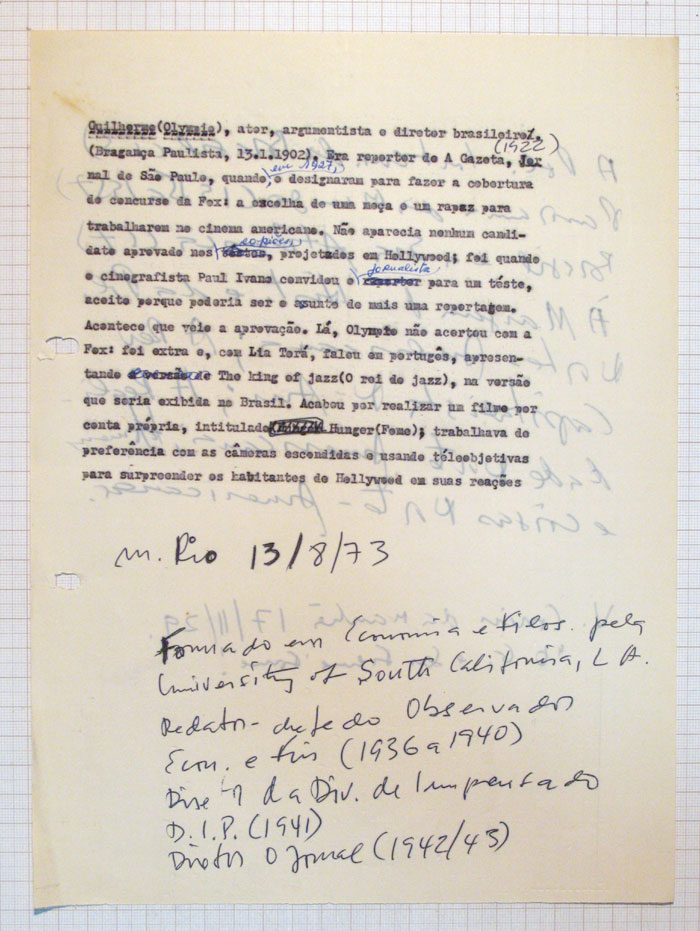 Guilherme(Olympio), ator, argumentista e diretor brasileiro.
(1922)
(Bragança Paulista, 13.1.1902). Era reporter de A Gazeta, Jor
em 1927,
nal de São Paulo, quando o designaram para fazer a cobertura
do concurso da Fox: a escolha de uma moça e um rapaz para
trabalharem no cinema americano. Não aparecia nenhum candi-
copiões
dato aprovado nos testes, projetados em Hollywood; foi quando
jornalista
o cinegrafista Paul Ivano convidou o reporter para um téste,
aceito porque poderia ser o asunto de mais uma reportagem.
Acontece que veio a aprovação. Lá, Olympio não acertou com a
Fox: foi extra e, com Lia Torá, falou em português, apresen-
tando The king of jazz(O rei do jazz), na versão
que seria exibida no Brasil. Acabou por realizar um filme por
conta própria, intitulado Hunger(Fome); trabalhava de
preferência com as câmeras escondidas e usando téleobjetivas
para surpreender os habitantes de Hollywood em suas reações
m. Rio 13/8/73
Formado em Economia e Filos. pela
University of South California, L A.
Redator-chefe do Observador
Econ. e Fin (1936 a 1940)
Diretor da Div. de Imprensa do
D.I.P. (1941)
Diretor O Jornal (1942/43)